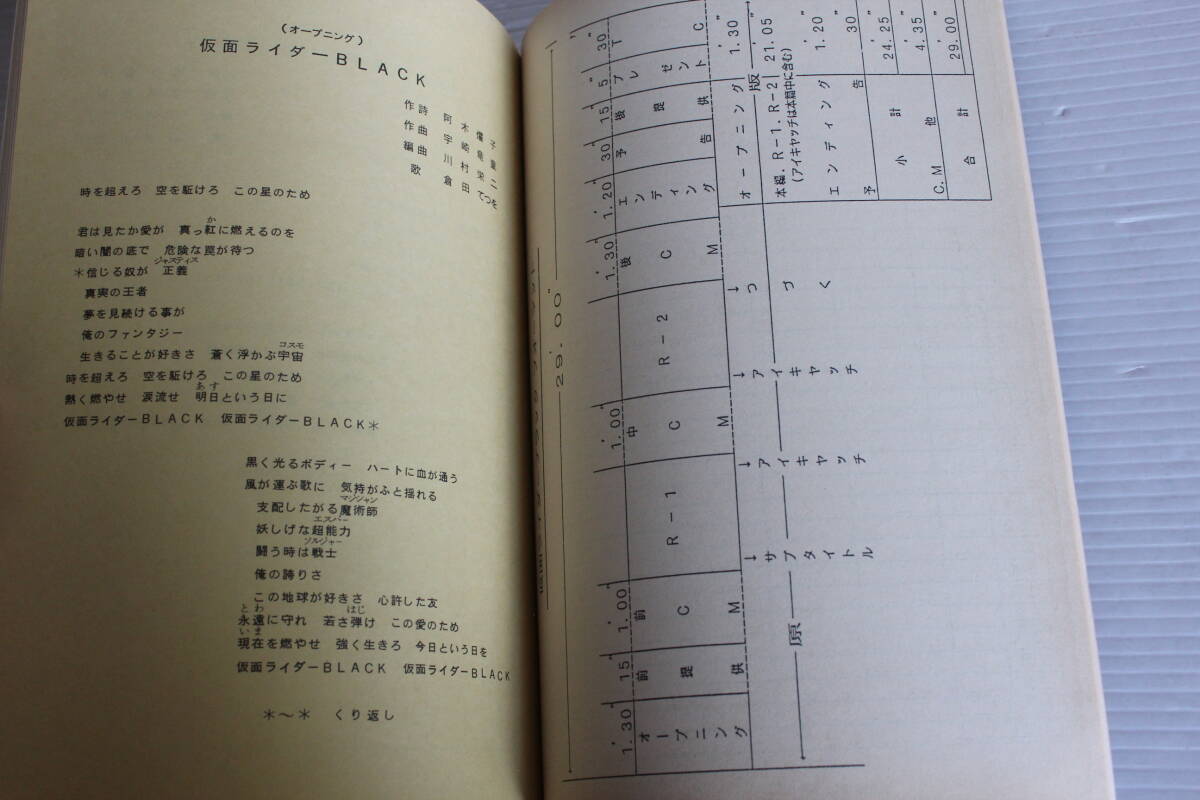 (オープニング)
仮面ライダーBLACK
作詩 阿木燿子
作曲 宇崎竜童
編曲 川村栄二
歌 倉田てつを
時を超えろ 空を駈けろ この星のため
君は見たか愛が 真っ紅に燃えるのを
か
暗い闇の底で 危険な罠が待つ
*信じる奴が 正義
ジャスティス
真実の王者
夢を見続ける事が
俺のファンタジー
生きることが好きさ 蒼く浮かぶ宇宙
コスモ
時を超えろ 空を駈けろ この星のため
熱く燃やせ 涙流せ 明日という日に
あす
仮面ライダーBLACK 仮面ライダーBLACK*
黒く光るボディー ハートに血が通う
風が運ぶ歌に 気持がふと揺れる
支配したがる魔術師
マジシャン
妖しげな超能力
エスパー
闘う時は戦士
ソルジャー
俺の誇りさ
この地球が好きさ 心許した友
永遠に守れ 若さ弾け この愛のため
とわ はじ
現在を燃やせ 強く生きろ 今日という日を
いま
仮面ライダーBLACK 仮面ライダーBLACK
*〜* くり返し
29′00″
1′30″ オープニング
15″ 前提供
1′00″ 前CM
R-1
1′00″ 中CM
R-2
1′30″ 後CM
1′20″ エンディング
30″ 予告
15″ 後提供
5″ プレゼント
30″ TC
原版
↓サブタイトル
↓アイキャッチ
↓アイキャッチ
↓つづく
オープニング 1′30″
本編.R-1.R-2 21′05″
(アイキャッチは本篇中に含む)
エンディング 1′20″
予告 30″
小計 24′25″
C.M他 4′35″
合計 29′00″